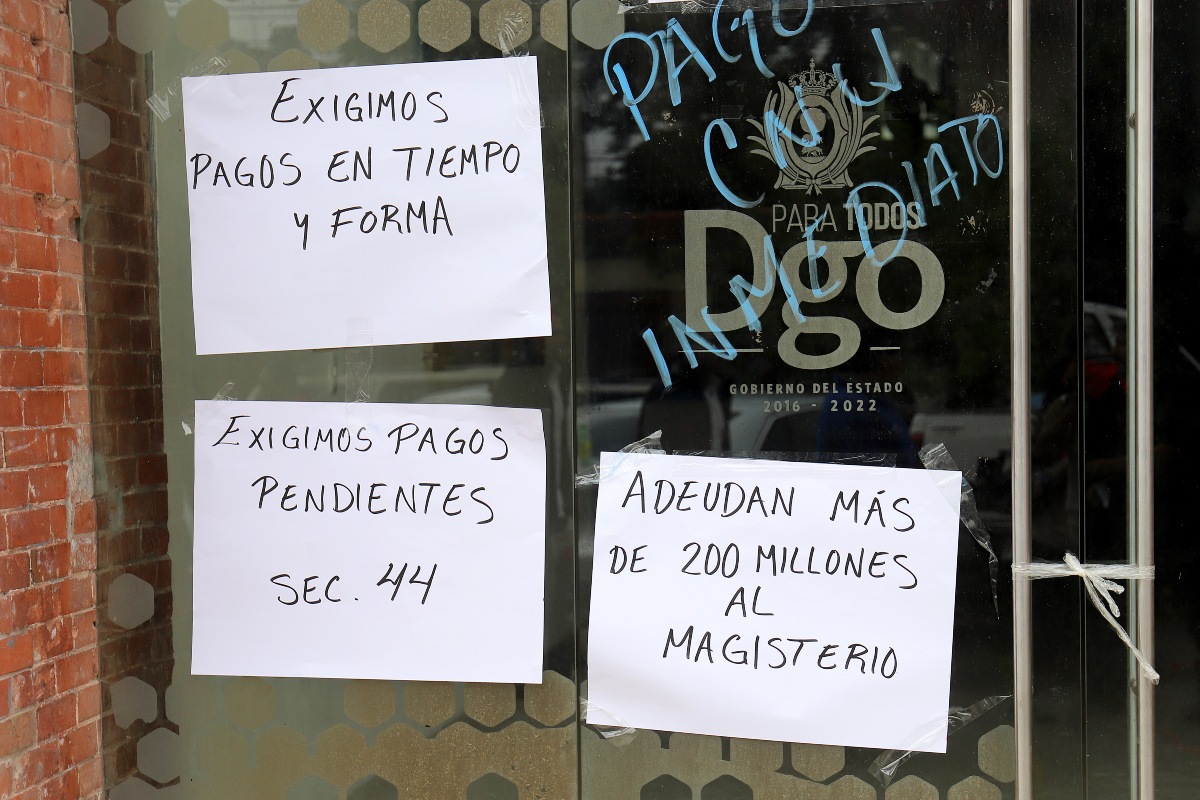 EXIGIMOS
PAGOS EN TIEMPO
y FORMA
EXIGIMOS PAGOS
PENDIENTES
SEC. 44
PAGO
CNJ
INMEDIATO
PARA TODOS
Dgo
GOBIERNO DEL ESTADO
2016 - 2022
ADEUDAN MÁS
DE 200 MILLONES
AL
MAGISTERIO